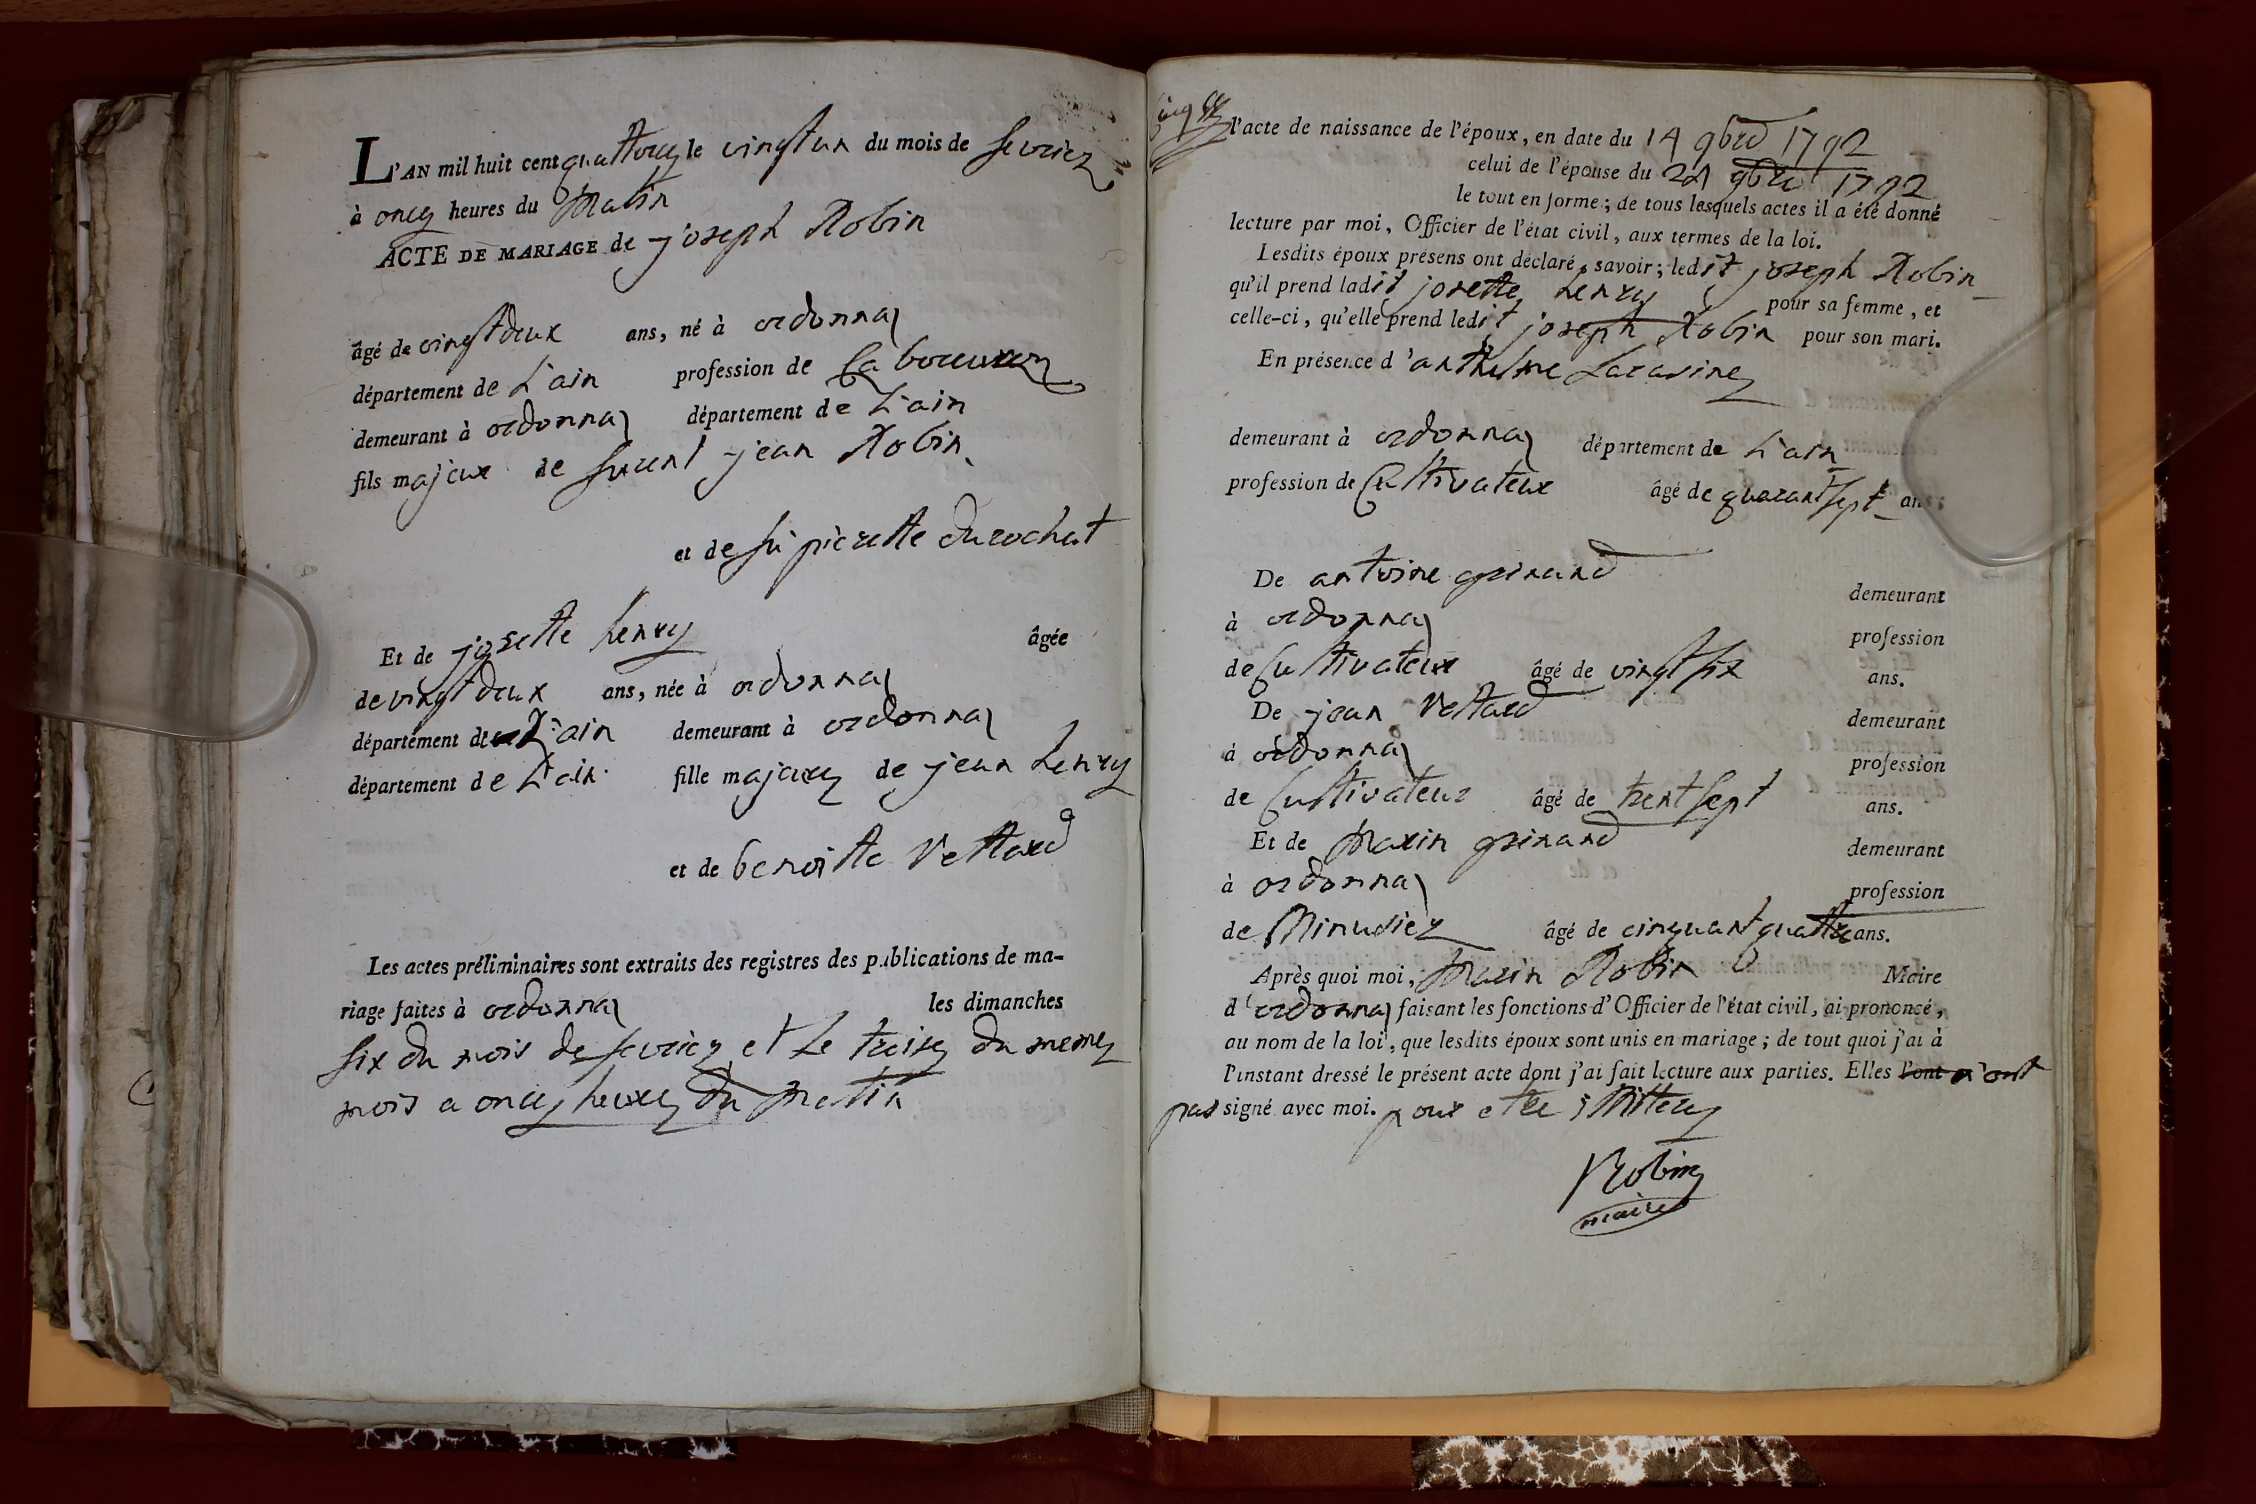 L'AN mil huit cent quattorze le vingt un du mois de fevrier
à onze heures du Matin
ACTE DE MARIAGE de joseph Robin
âgé de vingt deux ans, né à ordonnaz
département de L'ain profession de Laboureur
demeurant à ordonnaz département de L'ain
fils majeur de furent jean Robin
et de fu pierette Durochat
Et de josette henry âgée
de vingt deux ans, née à ordonnaz
département de L'ain demeurant à ordonnaz
département de L'ain fille majeure de jean henry
et de benoitte Vettard
Les actes préliminaires sont extraits des registres des publications de ma-
riage faites à ordonnaz les dimanches
Six du mois de fevrier et Le treise du meme
mois a onze heures du Matin
l'acte de naissance de l'époux, en date du 14 9bre 1792
celui de l'épouse du 9bre 1792
le tout en forme; de tous lesquels actes il a été donné
lecture par moi, Officier de l'état civil, aux termes de la loi.
Lesdits époux présens ont déclaré, savoir; ledit joseph Robin
qu'il prend ladit josette henry pour sa femme, et
celle-ci, qu'elle prend ledit joseph Robin pour son mari.
En présence d'anthelme Laracine
demeurant à ordonnaz département de L'ain
profession de Cultivateur âgé de quarant sept ans;
De antoine grinand demeurant
à ordonnaz profession
de Cultivateur âgé de vingt six ans.
De jean Vettard demeurant
à ordonnaz profession
de Cultivateur âgé de trent sept ans.
Et de Marin grinand demeurant
à ordonnaz profession
de Minusier âgé de cinquant quattre ans.
Après quoi moi, Marin Robin Maire
d'ordonnaz faisant les fonctions d'Officier de l'état civil, ai prononcé,
au nom de la loi, que lesdits époux sont unis en mariage; de tout quoi j'ai à
l'instant dressé le présent acte dont j'ai fait lecture aux parties. Elles l'ont n'ont
pas signé avec moi. pour etre
Robin
maire